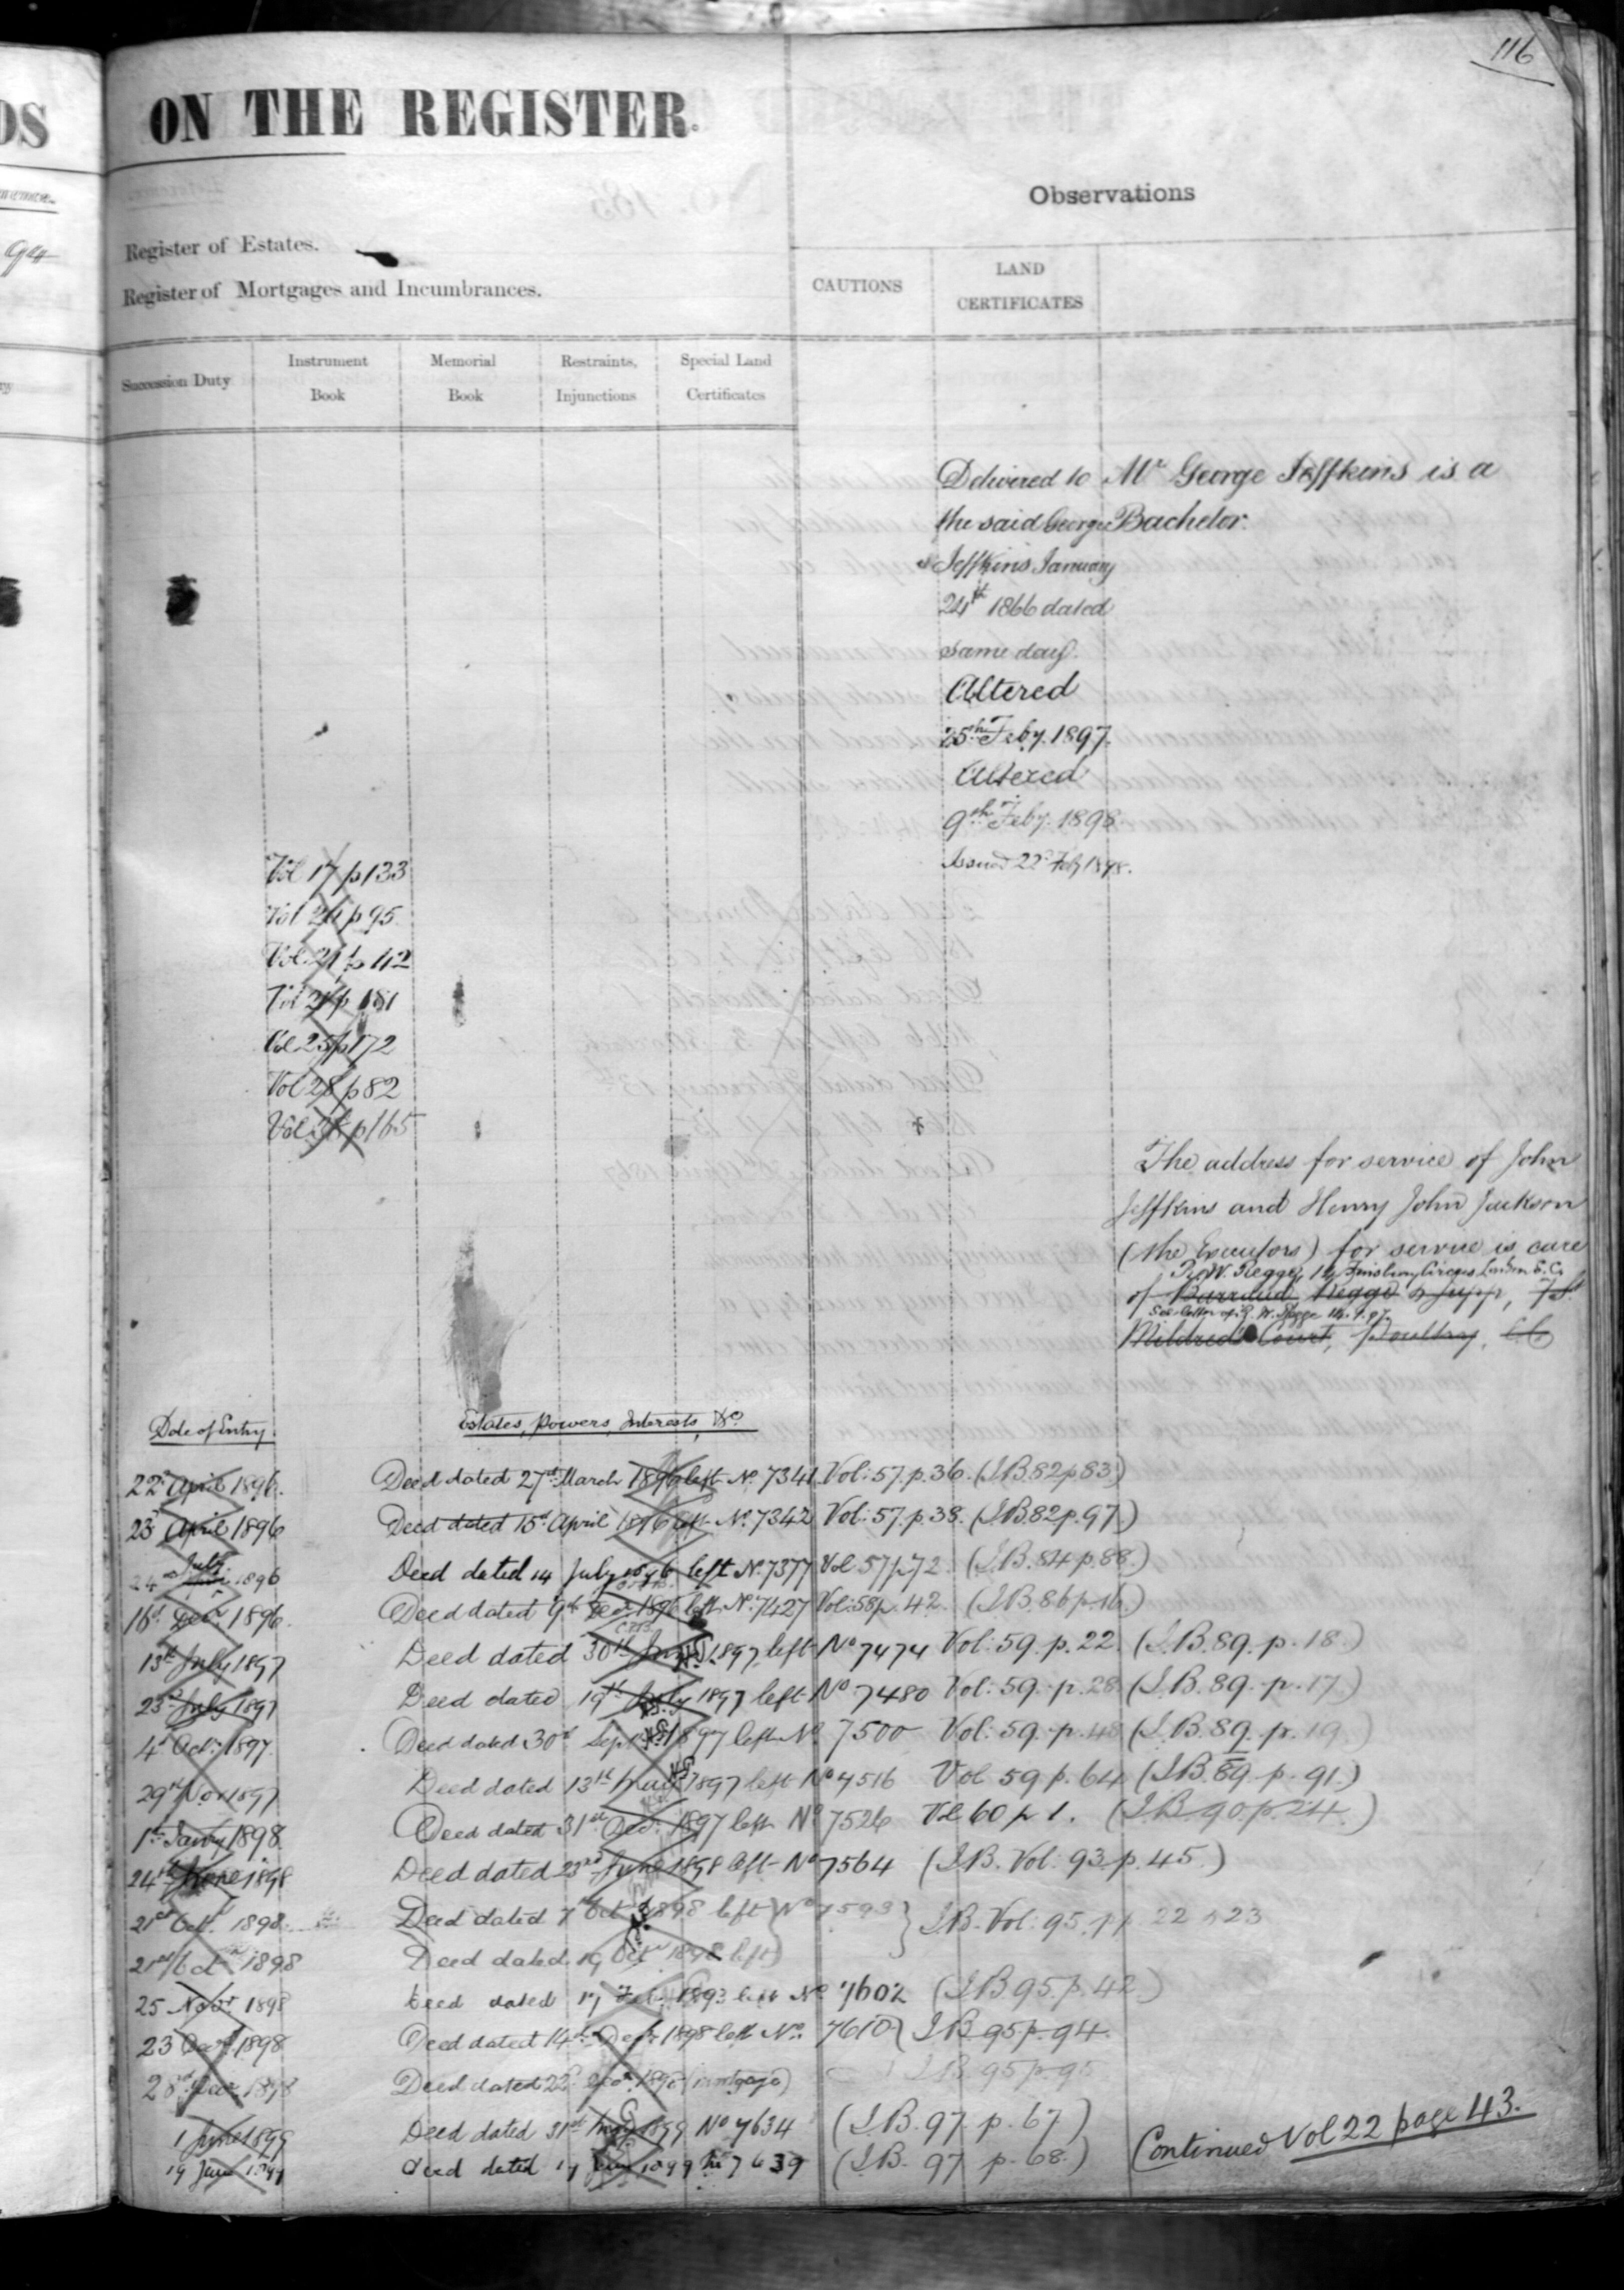 116
ON THE REGISTER.
Observations
Register of Estates.
Register of Mortgages and Incumbrances.
CAUTIONS
LAND CERTIFICATES
Succession Duty
Instrument Book
Memorial Book
Restraints, Injunctions
Special Land Certificates
Delivered to
the said George
Jeffkins January
24th 1866 dated
same day.
Altered
25th Feby. 1897.
Altered
9th Feby. 1898
Issued 22d Feby 1898.
Mr George Jeffkins is a
Bachelor.
Vol 17 p 133
Vol p 95
Vol. 21 p 112
Vol 21 p 181
Vol 25 p 172
Vol 28 p 82
Vol p 165
The address for service of John
Jeffkins and Henry John Jackson
(the Executors) for service is care
R. W. Pegge, Finsbury Circus London E.C.
of Pegge & Jupp,
See Letter of R. W. Pegge
Mildred Court, Poultry, E C
Date of Entry.
Estates, Powers, Interests, &c.
22d April 1896. Deed dated 27th March 1896 left No. 7341 Vol: 57. p. 36. (I.B. 82 p 83)
23d April 1896 Deed dated 15th April 1896 left No. 7342 Vol: 57. p. 38. (I.B. 82 p. 97.)
24 July 1896 Deed dated 14 July 1896 left No. 7377 Vol 57 p 72 (I.B. 84 p. 88.)
16th Decr 1896. Deed dated 9th Decr 1896 left No. 7427 Vol: 58 p. 42. (I.B. 86 p. 16)
13th July 1897 Deed dated 30th 1897 left No 7474 Vol: 59. p. 22. (I.B. 89. p. 18.)
23d July 1897 Deed dated 19th July 1897 left No 7480 Vol: 59. p. 28 (I.B. 89. p. 17.)
4th Oct: 1897. Deed dated 30th Sep 1897 left No. 7500 Vol: 59. p. 48 (I.B. 89. p. 19.)
29th Nov 1897 Deed dated 13th 1897 left No 7516 Vol 59 p. 64 (I.B. 89. p. 91.)
1st Jany 1898 Deed dated 31st Dec: 1897 left No 7526 Vol 60 p 1. (I.B. 90. p. 24.)
24th June 1898 Deed dated 23rd June 1898 left No 7564 (I.B. Vol: 93. p. 45.)
21st Oct. 1898 Deed dated 7th Oct 1898 left No 7593 } I.B. Vol: 95. pp 22 & 23
21st Oct 1898 Deed dated 19 Oct 1898 left
25 Novr 1898 Deed dated 17 1893 left No 7602 (I.B. 95. p. 42.)
23 Decr 1898 Deed dated 14th Decr 1898 left No. 7610 } I.B. 95 p. 94.
28th Decr 1898 Deed dated 22d 1898 (mortgage) I.B. 95 p 95
1 June 1899 Deed dated 31st May 1899 No 7634 (I.B. 97. p. 67)
19 June 1899 Deed dated 17 June 1899 No 7639 (I.B. 97 p. 68.)
Continued Vol 22 page 43.